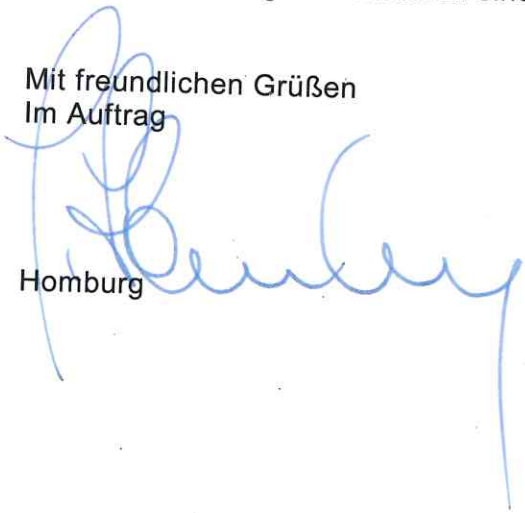 Mit freundlichen Grüßen
Im Auftrag
Homburg